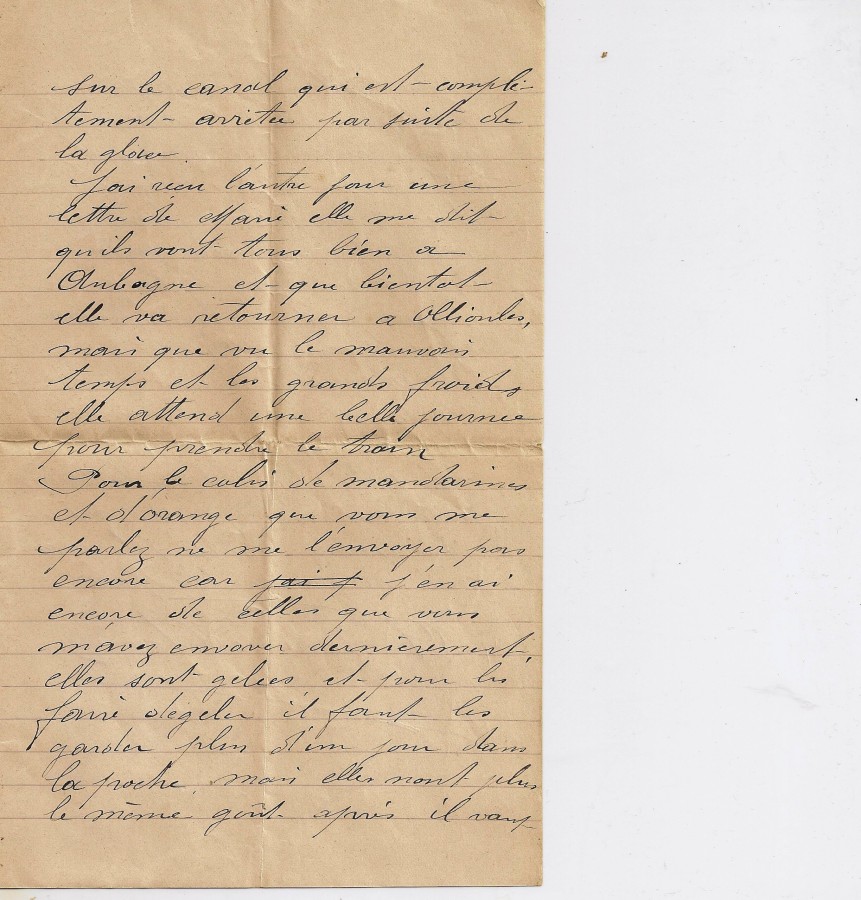 sur le canal qui est complè-
tement arrêtée par suite de
la glace.
J'ai reçu l'autre jour une
lettre de Marie elle me dit
qu'ils vont tous bien a
Aubagne et que bientot
elle va retourner a Ollioules,
mais que vu le mauvais
temps et les grands froids
elle attend une belle journée
pour prendre le train
Pour le colis de mandarines
et d'orange que vous me
parlez ne me l'envoyer pas
encore car j'ai f j'en ai
encore de celles que vous
m'avez envoyer dernièrement,
elles sont gelées et pour les
faire dégeler il faut les
garder plus d'un jour dans
la poche, mais elles n'ont plus
le même goût après il vaut